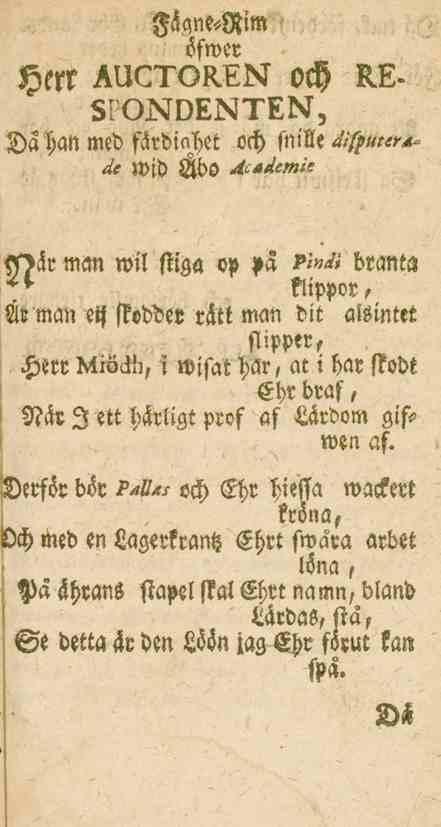 Fägne-Rim
öfwer
Herr AUCTOREN och RE-
SPONDENTEN,
Då han med färdighet och snille disputera-
de wid Åbo Academie
När man wil stiga op på Pindi branta
klippor,
Är man eij skodder rätt man dit alsintet
slipper,
Herr Miödh, i wisat här, at i har skodt
Ehr braf,
När I ett härligt prof af Lärdom gif-
wen af.
Derför bör Pallas och Ehr hiessa wackert
kröna,
Och med en Lagerkrantz Ehrt swåra arbet
löna,
På ährans stapel skal Ehrt namn, bland
Lärdas, stå,
Se detta är den Löön jag Ehr förut kan
spå.
Då